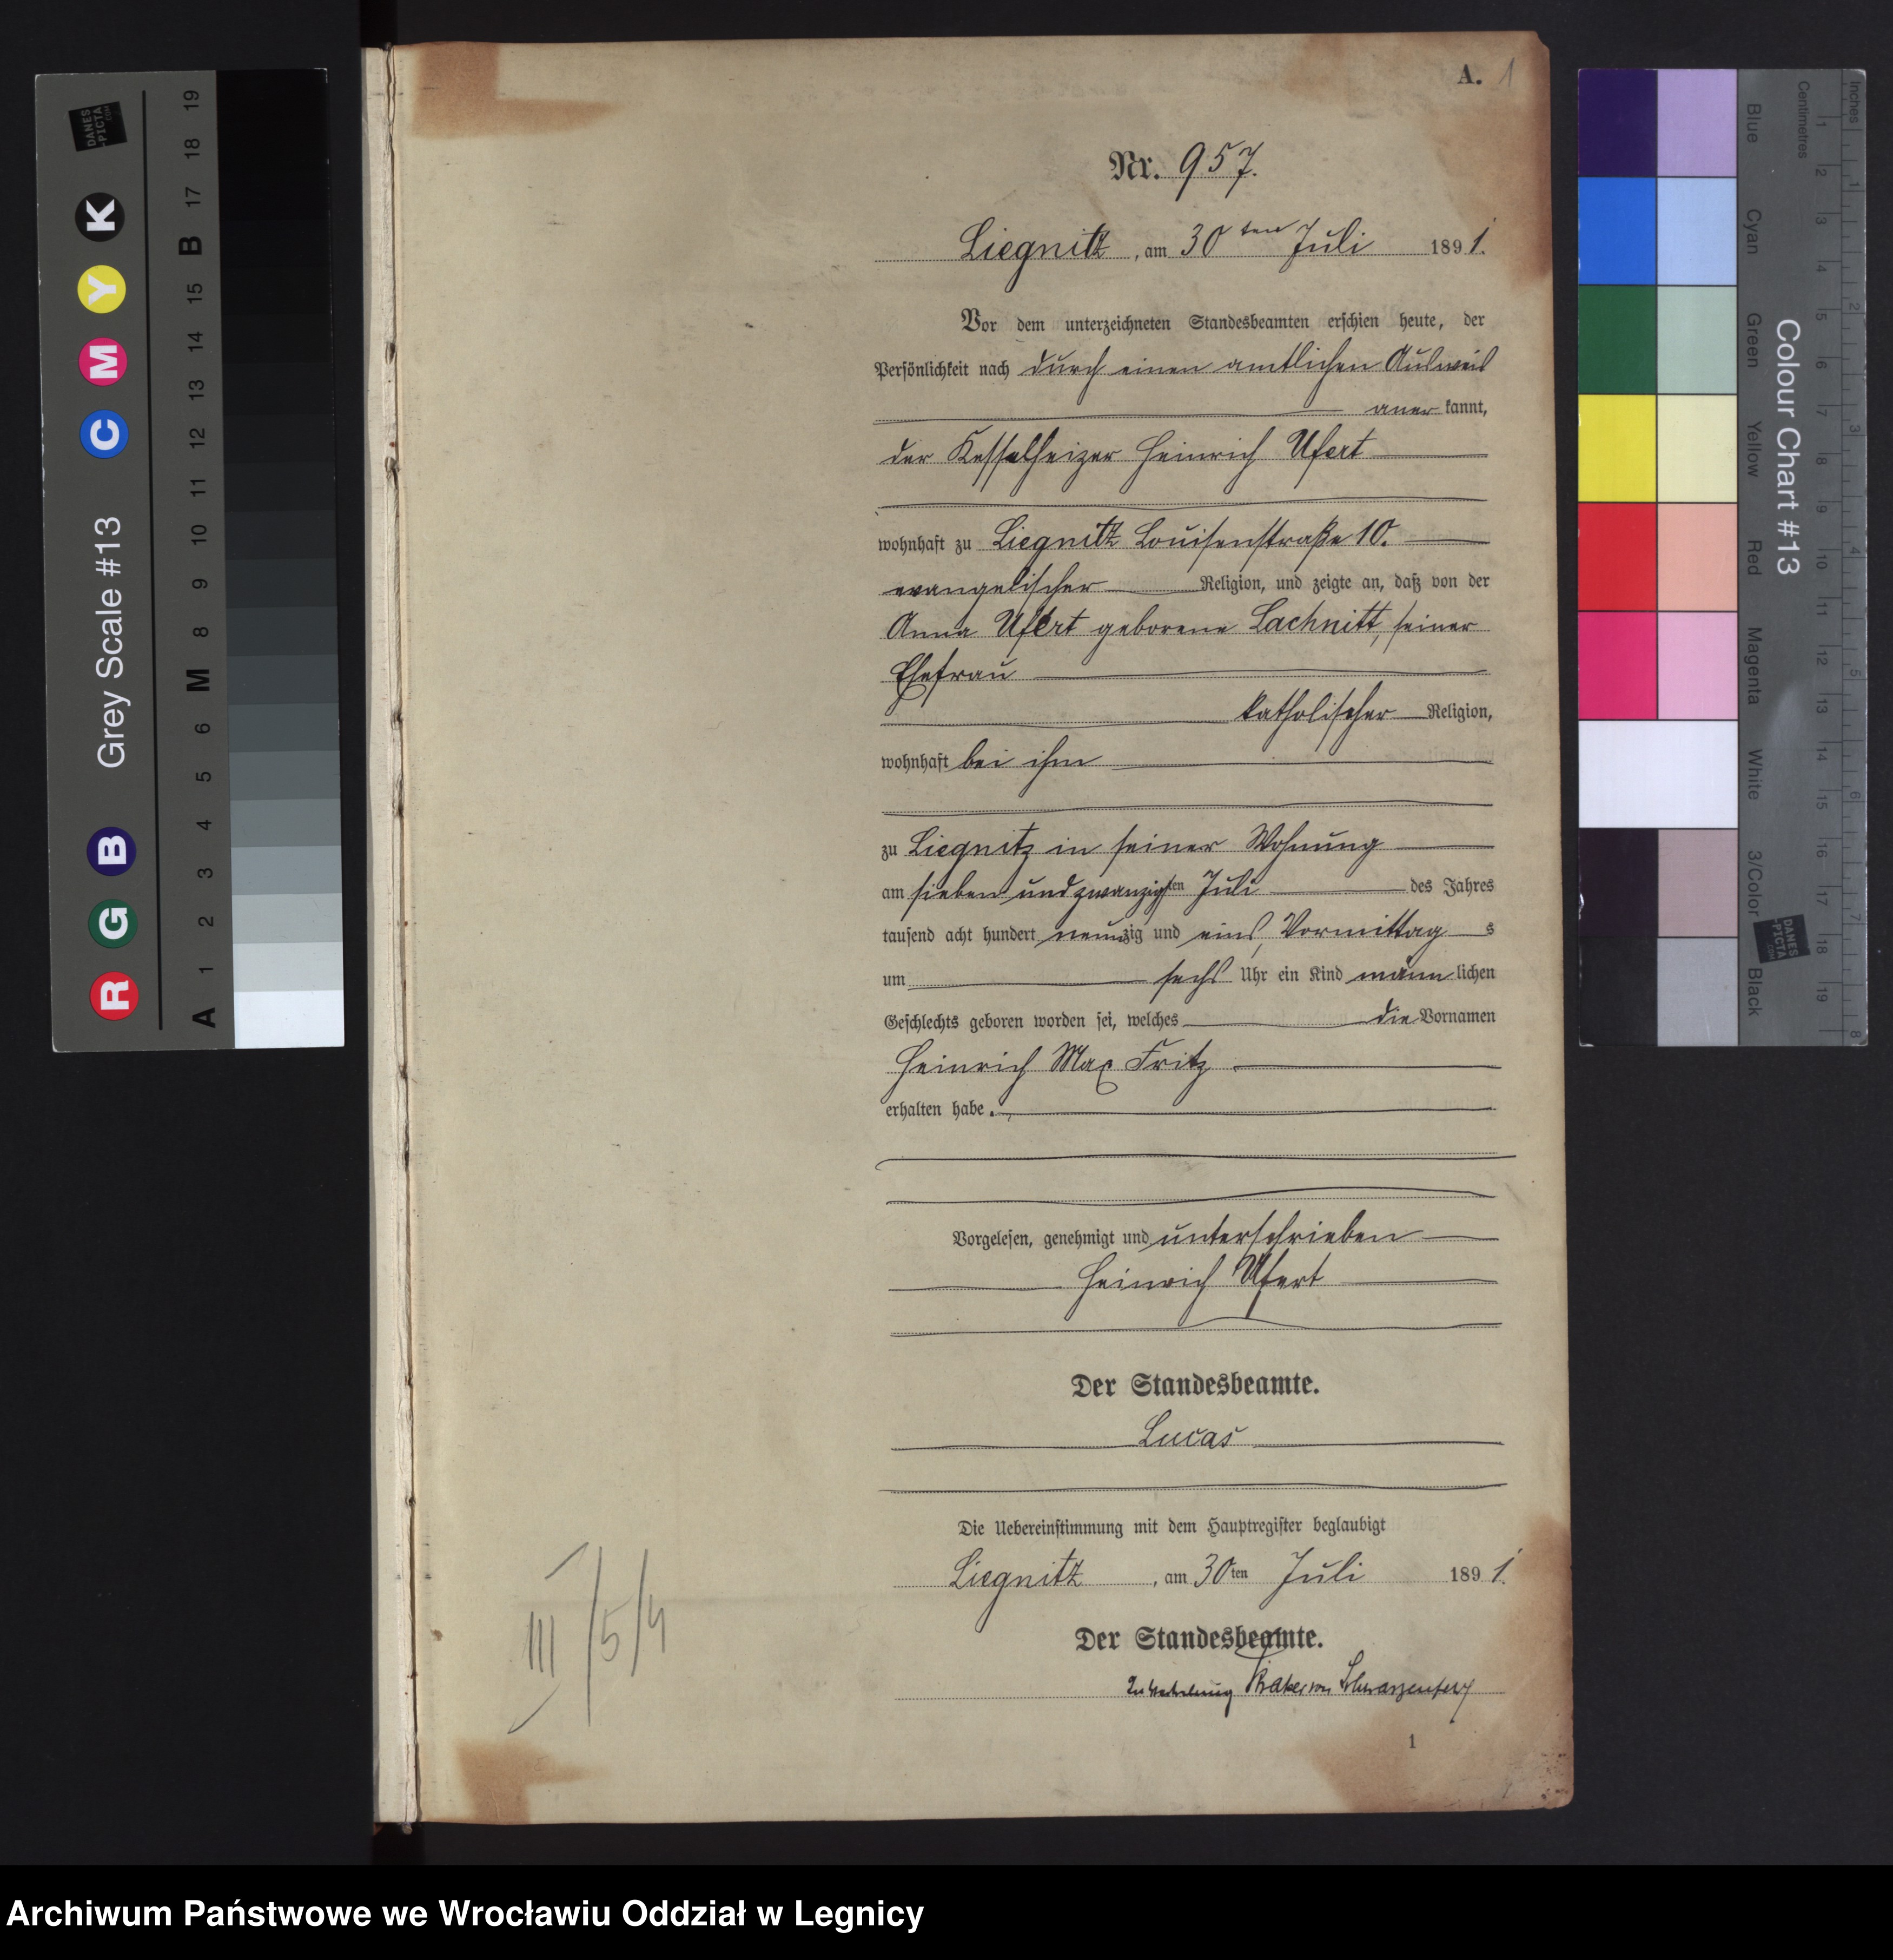 A. 1
Nr. 957.
Liegnitz, am 30ten Juli 1891.
Vor dem unterzeichneten Standesbeamten erschien heute, der
Persönlichkeit nach durch einen amtlichen Ausweis
anerkannt,
der Kesselheizer Heinrich Ufert
wohnhaft zu Liegnitz Louisenstraße 10.
evangelischer Religion, und zeigte an, daß von der
Anna Ufert geborene Lachnitt, seiner
Ehefrau
katholischer Religion,
wohnhaft bei ihm
zu Liegnitz in seiner Wohnung
am sieben und zwanzigsten Juli des Jahres
tausend acht hundert neunzig und eins, Vormittags
um sechs Uhr ein Kind männlichen
Geschlechts geboren worden sei, welches die Vornamen
Heinrich Max Fritz
erhalten habe.
Vorgelesen, genehmigt und unterschrieben
Heinrich Ufert
Der Standesbeamte.
Lucas
Die Uebereinstimmung mit dem Hauptregister beglaubigt
Liegnitz, am 30ten Juli 1891.
Der Standesbeamte.
von Schwarzenberg
III/5/4
1
Grey Scale #13
R G B C M Y K
A 1 2 3 4 5 6 M 8 9 10 11 12 13 14 15 B 17 18 19
DANES-PICTA.COM
Colour Chart #13
Blue Cyan Green Yellow Red Magenta White 3/Color Black
Centimetres 1 2 3 4 5 6 7 8 9 10 11 12 13 14 15 16 17 18 19
Inches 1 2 3 4 5 6 7 8
DANES-PICTA
Archiwum Państwowe we Wrocławiu Oddział w Legnicy